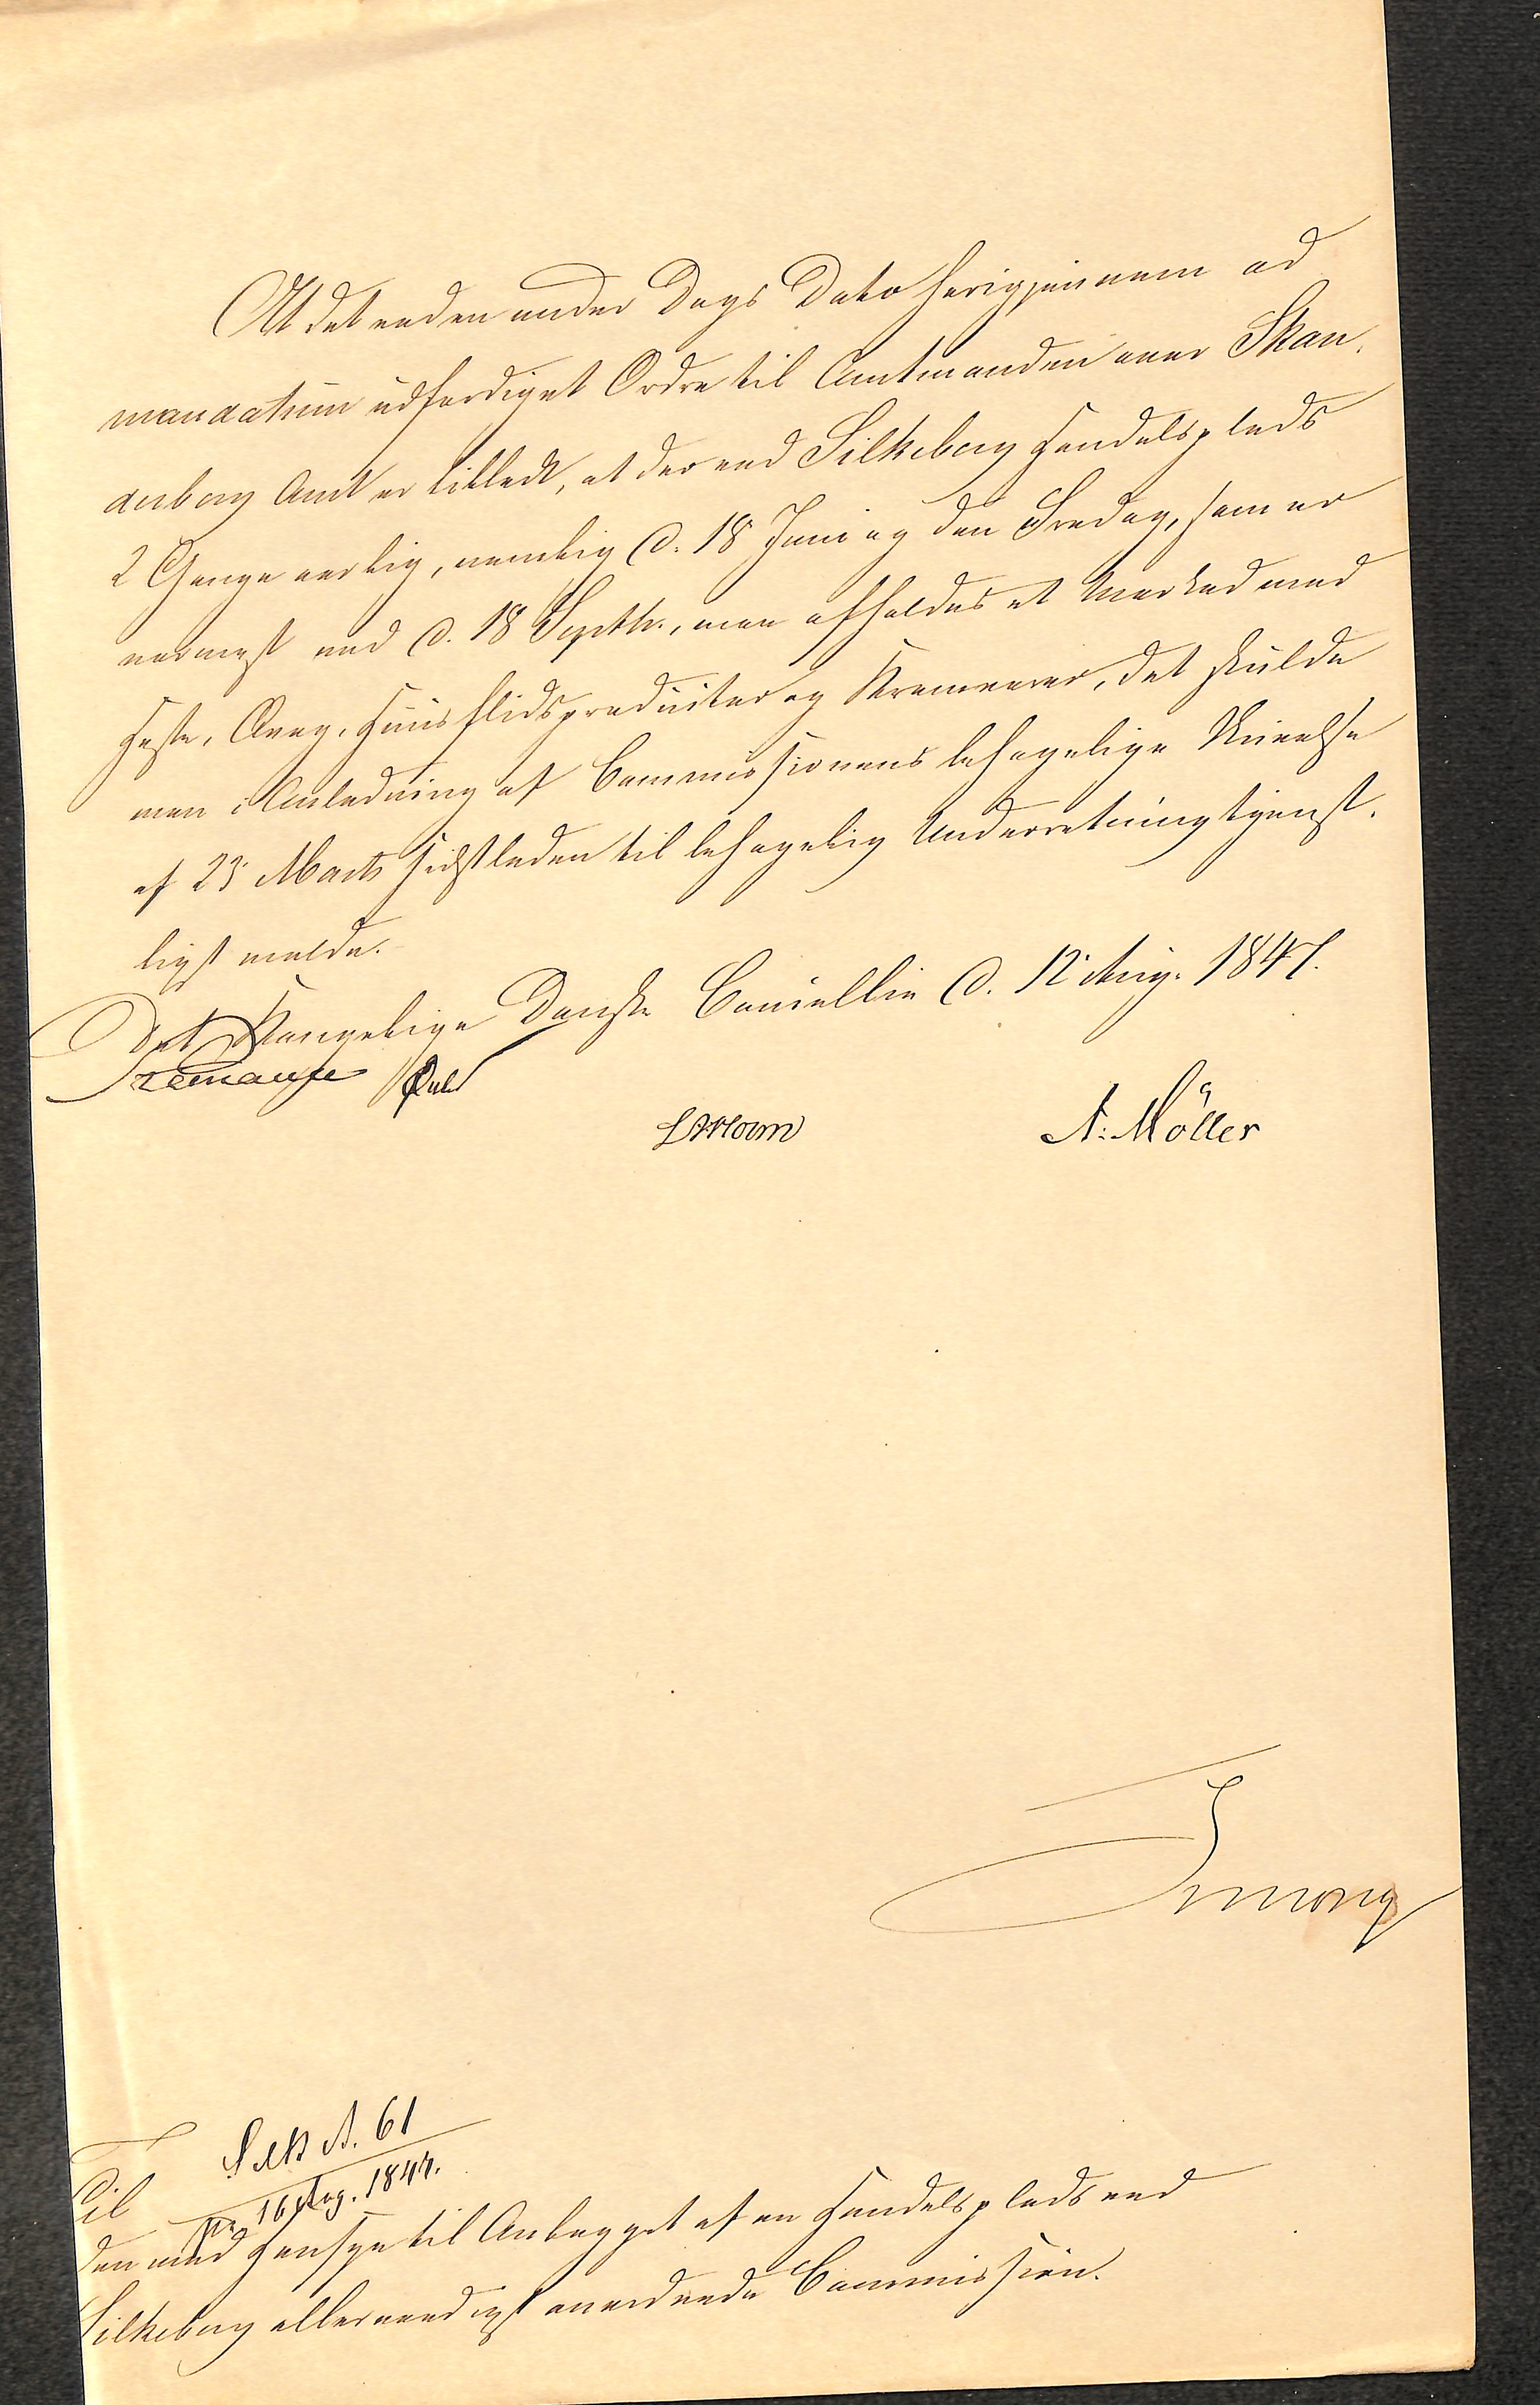 At det ved en under Dags Dato herigjennem ad
mandatum udfærdiget Ordre til Amtmanden over Skan-
derborg Amt er tilladt, at der ved Silkeborg Handelsplads
2 Gange aarlig, nemlig d. 18 Juni og den Fredag, som er
nærmest ved d. 18 Septbr., maa afholdes et Marked med
Heste, Qvæg, Huusflidsproducter og Kramvarer, det skulde
man i Anledning af Commissionens behagelige Skrivelse
af 23 Marts sidstleden til behagelig Underretning tjenst-
ligst melde.
Det Kongelige Danske Cancellie d. 12 Aug. 1847.
Stemann
A: Möller
Silk A. 61
16 Aug. 1847.
Til
den med Hensyn til Anlægget af en Handelsplads ved
Silkeborg allernaadigst anordnede Commission.